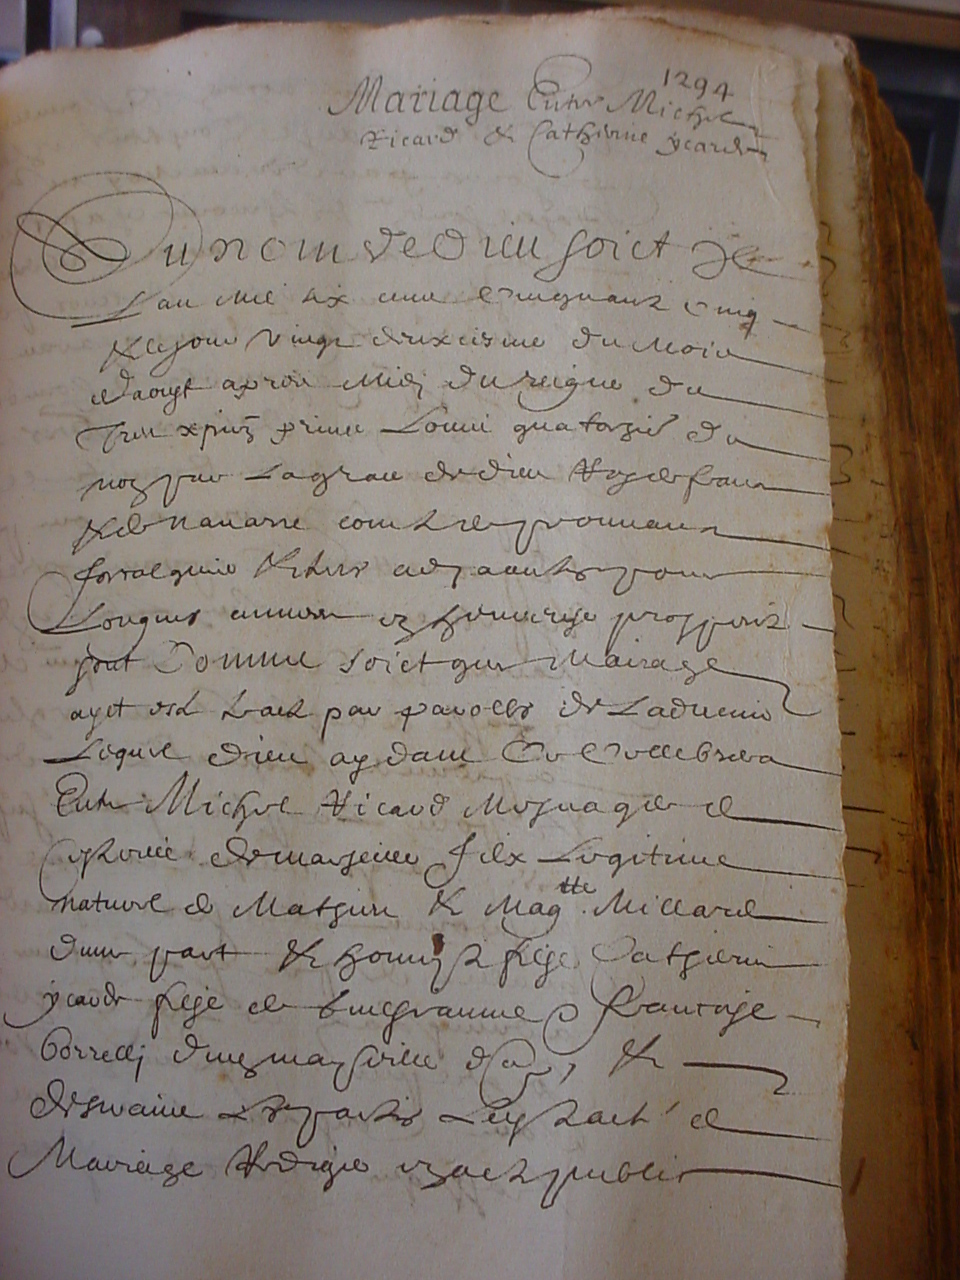 1294
Mariage Entre Michel
Ricard & Catherine ycarde
Au nom de Dieu soict
Lan mil six cens cinquante cinq
& le jour vingt deuxiesme du Mois
daoust apres Midy du reigne du
tres prince Louis quatorzie du
nom par La grace de dieu Roy de france
& de navarre comte de provence
forcalquier & terres adjacentes pour
Longues annees
soit Comme soict que Mairage
ayt esté traité par parolles de Ladvenir
Lequel dieu aydant Ce Cellebrera
Entre Michel Ricard Mesnager de
de marseille filx Legitime
naturel de Mathieu & Mag.tte Millard
dune part & honneste fillje Catherine
ycarde fillje de & franscoise
Borrelly &
desirant Les partis Leur traité de
Mariage Redigé en acte public